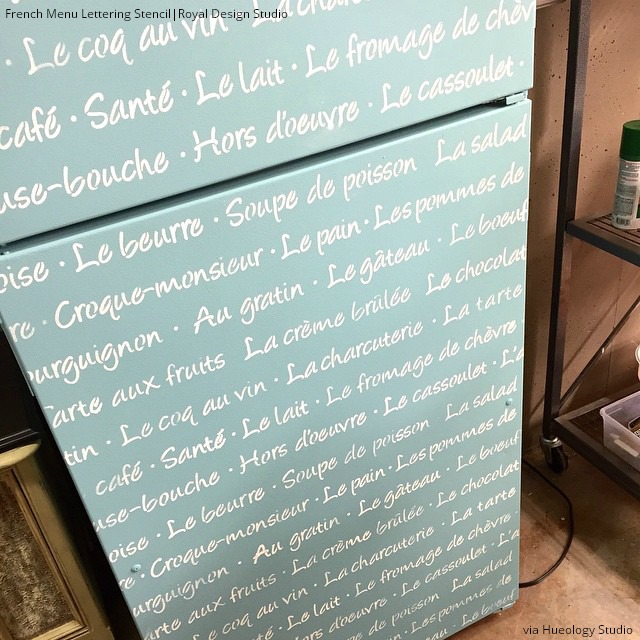 French Menu Lettering Stencil|Royal Design Studio
· Le coq au vin · La charcu
café · Santé · Le lait · Le fromage de chèv
use-bouche · Hors d'oeuvre · Le cassoulet ·
oise · Le beurre · Soupe de poisson La salad
re · Croque-monsieur · Le pain · Les pommes de
ourguignon · Au gratin · Le gâteau · Le boeuf
arte aux fruits La crème brûlée Le chocolat
tin · Le coq au vin · La charcuterie · La tarte
café · Santé · Le lait · Le fromage de chèvre
use-bouche · Hors d'oeuvre · Le cassoulet · L'a
oise · Le beurre · Soupe de poisson La salad
re · Croque-monsieur · Le pain · Les pommes de
urguignon · Au gratin · Le gâteau · Le boeuf
arte aux fruits · La crème brûlée · Le chocolat
Le coq au vin · La charcuterie · La tarte
Santé · Le lait · Le fromage de chèvre
Hors d'oeuvre · Le cassoulet · L'a
Soupe de poisson La salad
Les pommes de
Le boeuf
via Hueology Studio